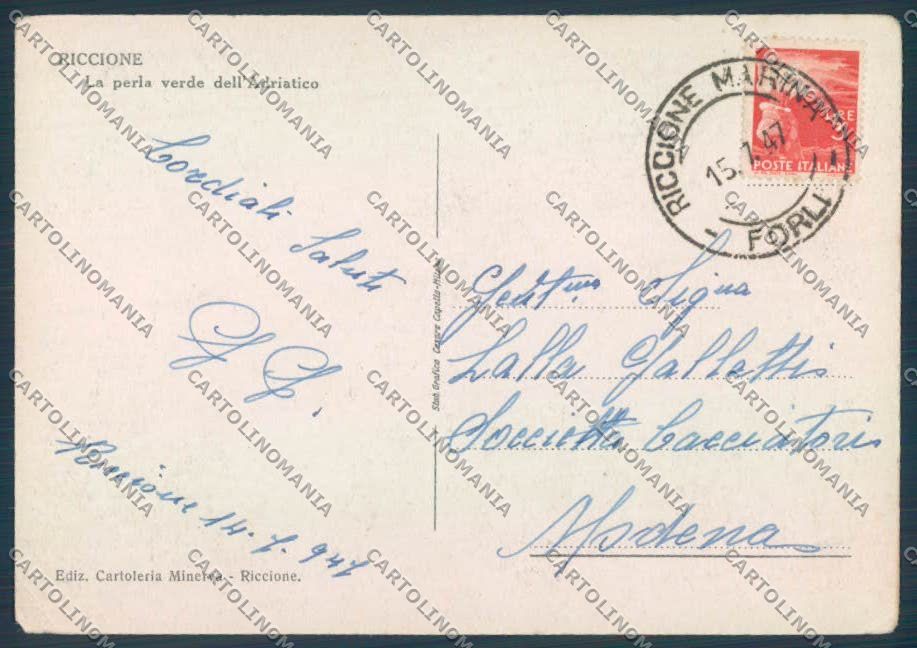 RICCIONE
La perla verde dell'Adriatico
Cordiali
Saluti
Riccione 14-7-947
Ediz. Cartoleria Minerva - Riccione.
Stab. Grafico Cesare Capello - Milano
RICCIONE MARINA
15.7.47
- FORLI
LIRE
POSTE ITALIANE
Gent.ma Sig.na
Lalla Gallattis
Soccietta Cacciatori
Modena
CARTOLINOMANIA